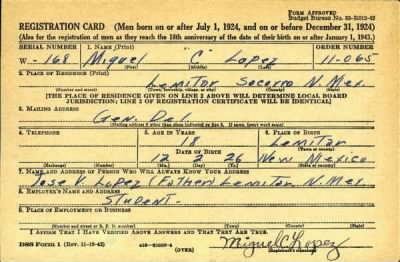 FORM APPROVED
REGISTRATION CARD (Men born on or after July 1, 1924, and on or before December 31, 1924)
(Also for the registration of men as they reach the 18th anniversary of the date of their birth on or after January 1, 1943.)
SERIAL NUMBER 1. NAME (Print) ORDER NUMBER
W-168 Miguel C Lopez 11-065
(First) (Middle) (Last)
2. PLACE OF RESIDENCE (Print)
Lemitar Socorro N. Mex.
(Number and street) (Town, township, village, or city) (County) (State)
[THE PLACE OF RESIDENCE GIVEN ON LINE 2 ABOVE WILL DETERMINE LOCAL BOARD
JURISDICTION; LINE 2 OF REGISTRATION CERTIFICATE WILL BE IDENTICAL]
3. MAILING ADDRESS
Gen. Del.
4. TELEPHONE 5. AGE IN YEARS 6. PLACE OF BIRTH
18 Lemitar
DATE OF BIRTH (Town or county)
12 2 26 New Mexico
(Exchange) (Number) (Mo.) (Day) (Yr.) (State or country)
7. NAME AND ADDRESS OF PERSON WHO WILL ALWAYS KNOW YOUR ADDRESS
Jose V. Lopez (Father) Lemitar, N. Mex.
8. EMPLOYER'S NAME AND ADDRESS
Student-
9. PLACE OF EMPLOYMENT OR BUSINESS
(Number and street or R. F. D. number) (Town) (County) (State)
I AFFIRM THAT I HAVE VERIFIED ABOVE ANSWERS AND THAT THEY ARE TRUE.
DSS Form 1 (Rev. 11-16-42) (OVER) Miguel C Lopez
(Registrant's signature)